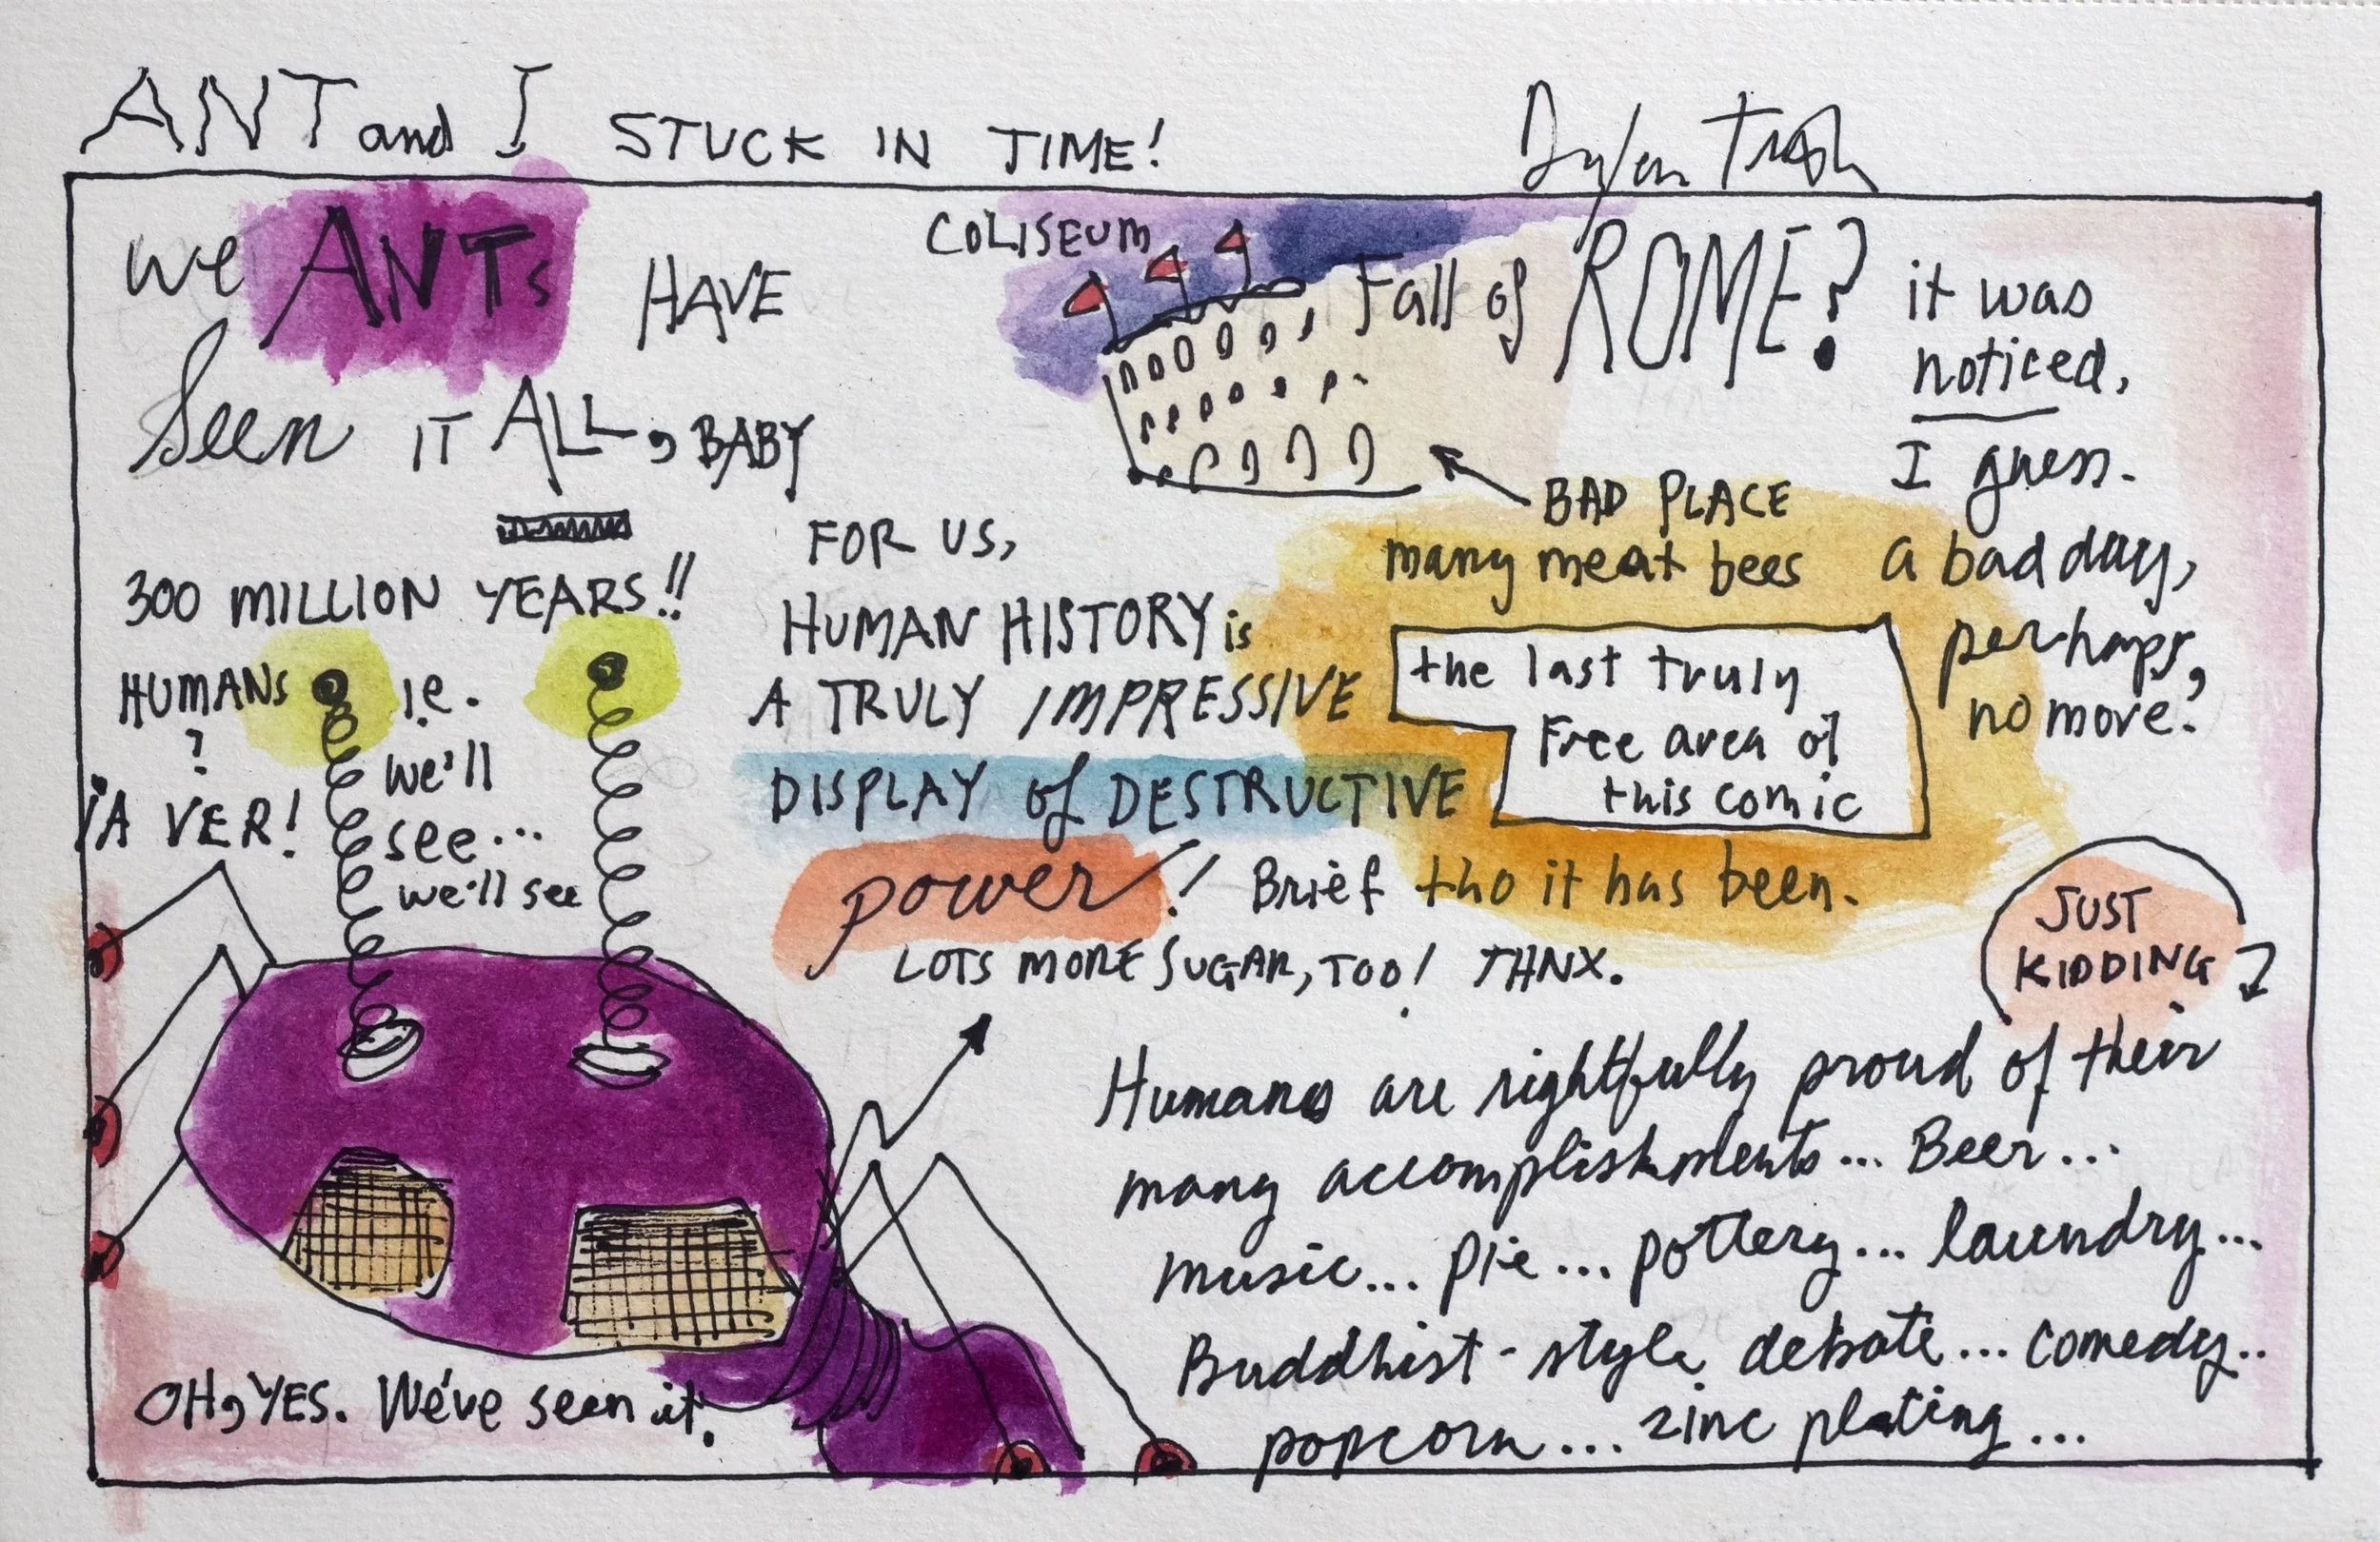 ANT and I STUCK IN TIME!
Dylan
we ANTs HAVE
Seen IT ALL, BABY
300 MILLION YEARS!!
HUMANS
?
¡A VER!
i.e.
we'll
see...
we'll see
COLISEUM
Fall of ROME?
it was
noticed,
I guess.
a bad day,
perhaps,
no more?
BAD PLACE
many meat bees
FOR US,
HUMAN HISTORY is
A TRULY IMPRESSIVE
DISPLAY of DESTRUCTIVE
power! Brief tho it has been.
LOTS MORE SUGAR, TOO! THNX.
the last truly
Free area of
this comic
JUST
KIDDING
Humans are rightfully proud of their
many accomplishments... Beer...
music... pie... pottery... laundry...
Buddhist-style debate... comedy..
popcorn... zinc plating...
OH, YES. We've seen it.